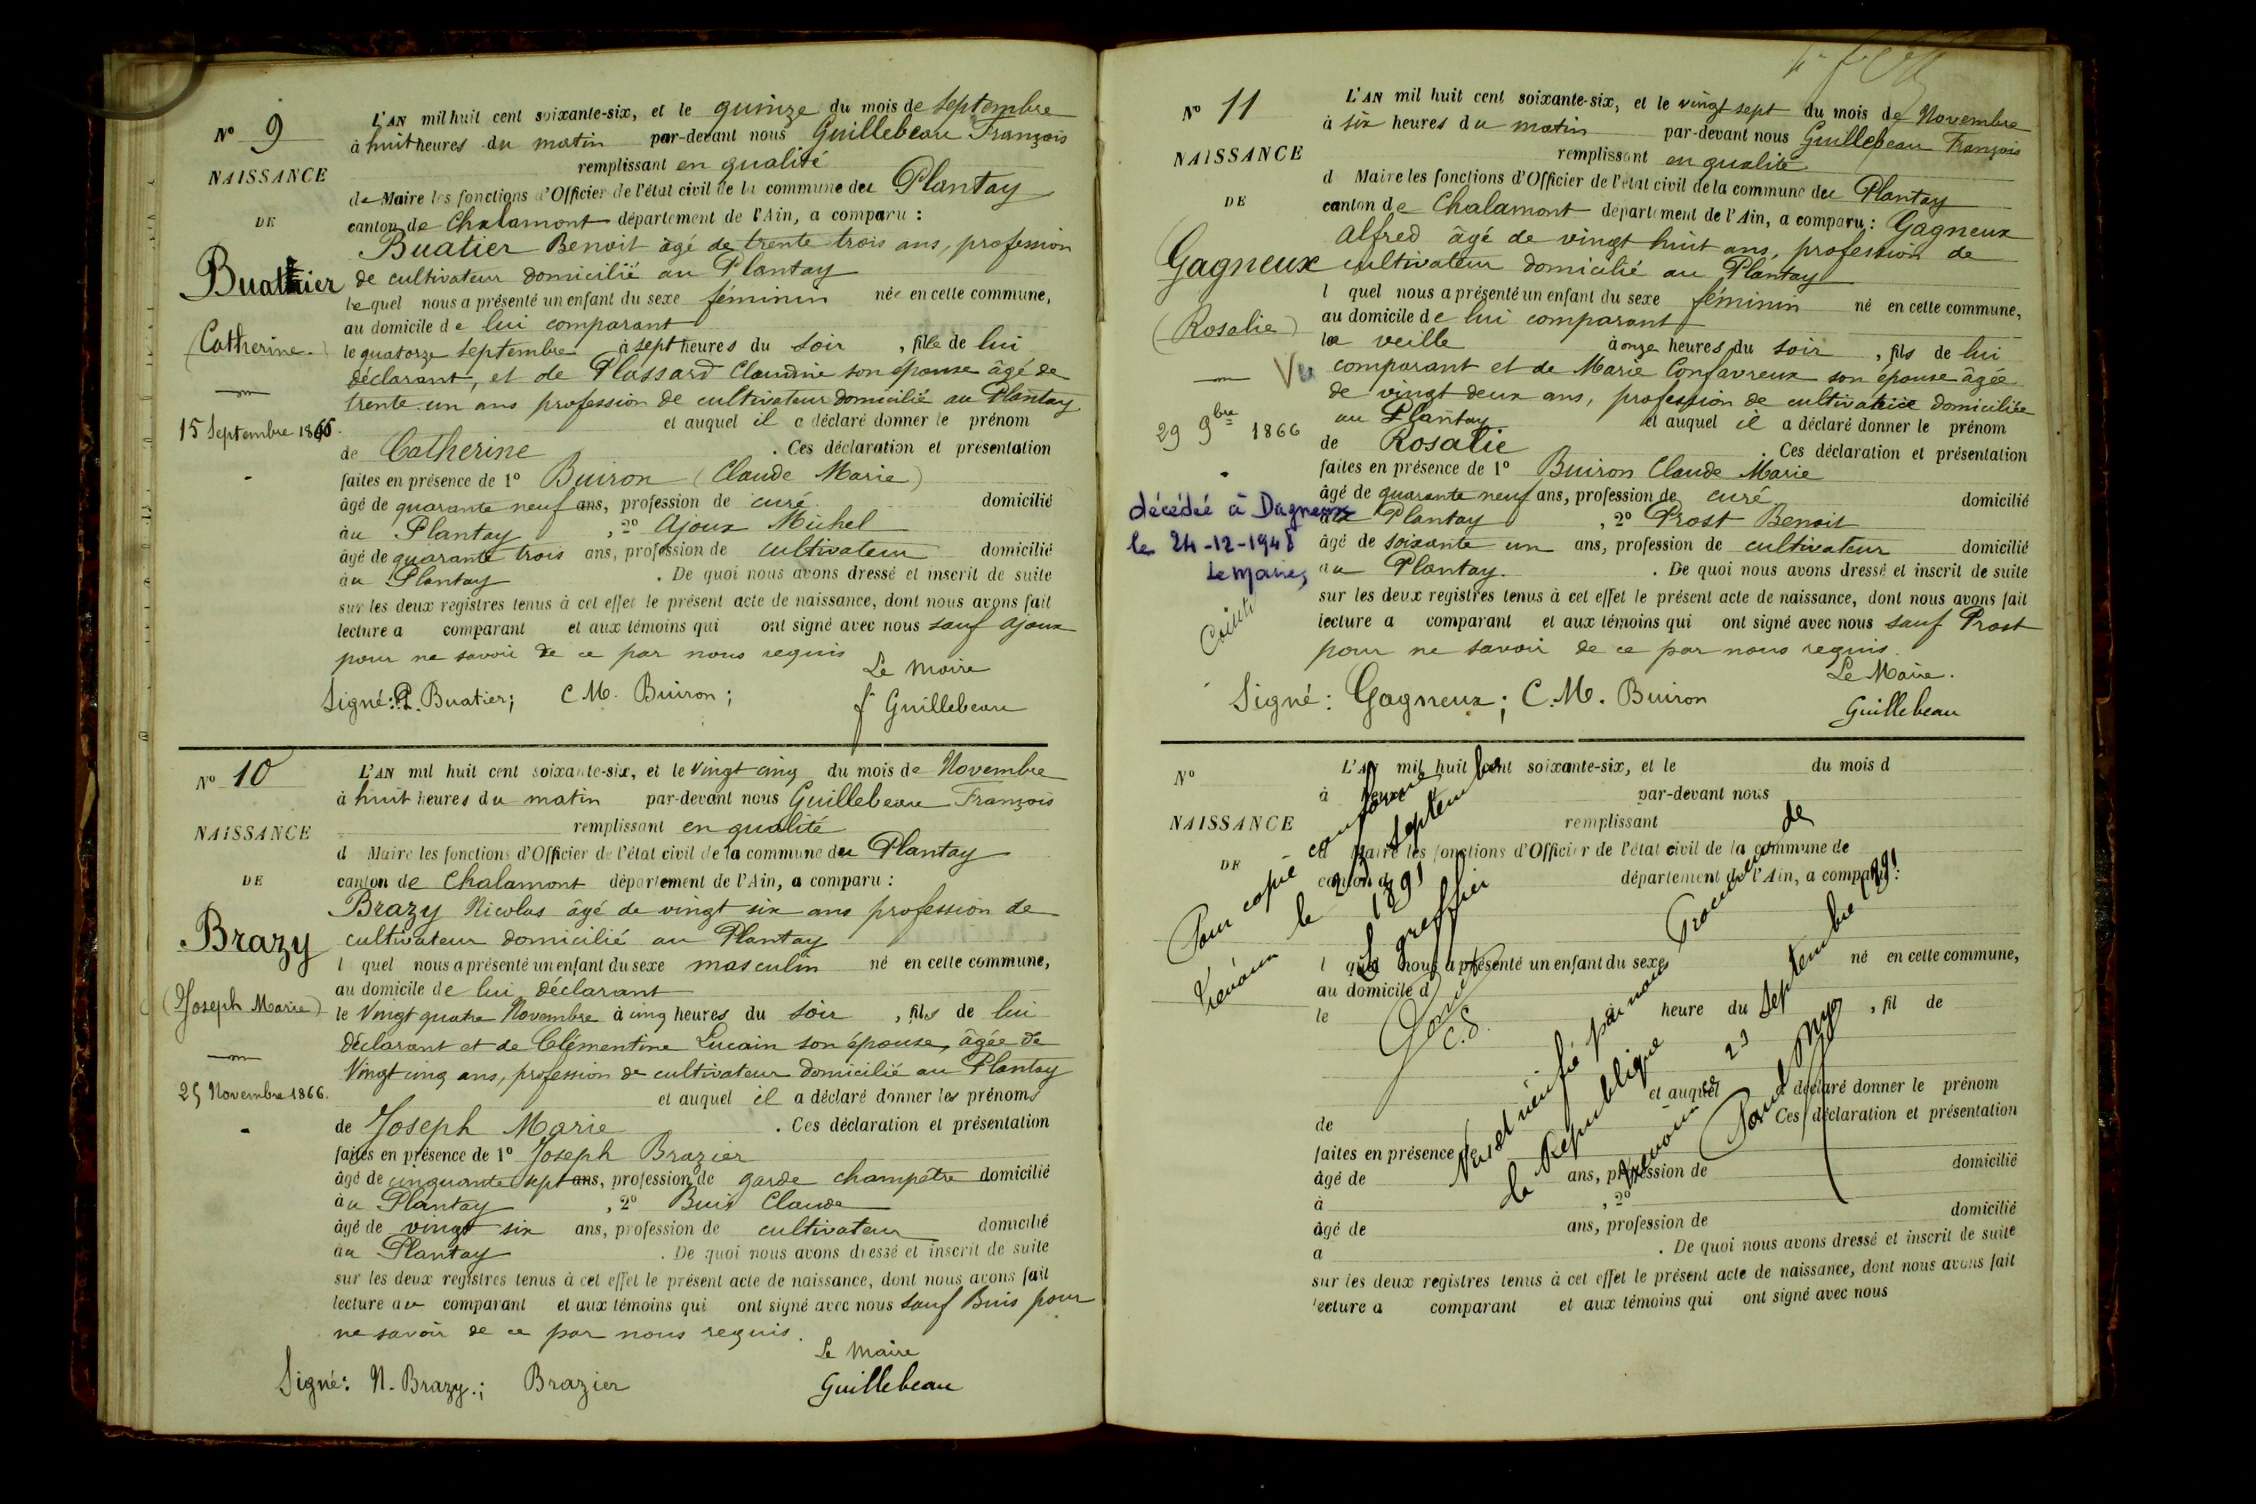 N° 9
NAISSANCE
DE
Buattier
(Catherine.)
15 Septembre 1866.
L'AN mil huit cent soixante-six, et le quinze du mois de Septembre
à huit heures du matin par-devant nous Guillebeau François
remplissant en qualité
de Maire les fonctions d'Officier de l'état civil de la commune du Plantay
canton de Chalamont département de l'Ain, a comparu :
Buatier Benoit âgé de trente trois ans, profession
de cultivateur domicilié au Plantay
lequel nous a présenté un enfant du sexe féminin née en cette commune,
au domicile de lui comparant
le quatorze Septembre à sept heures du soir , fille de lui
déclarant, et de Plassard Claudine son épouse âgé de
trente-un ans profession de cultivateur domicilié au Plantay
et auquel il a déclaré donner le prénom
de Catherine . Ces déclaration et présentation
faites en présence de 1° Buiron (Claude Marie)
âgé de quarante neuf ans, profession de curé domicilié
au Plantay , 2° Ajoux Michel
âgé de quarante trois ans, profession de cultivateur domicilié
au Plantay . De quoi nous avons dressé et inscrit de suite
sur les deux registres tenus à cet effet le présent acte de naissance, dont nous avons fait
lecture a comparant et aux témoins qui ont signé avec nous sauf Ajoux
pour ne savoir de ce par nous requis
Le Maire
Signé: Buatier; C M. Buiron; f Guillebeau
N° 10
NAISSANCE
DE
Brazy
(Joseph Marie)
25 Novembre 1866.
L'AN mil huit cent soixante-six, et le Vingt cinq du mois de Novembre
à huit heures du matin par-devant nous Guillebeau François
remplissant en qualité
d Maire les fonctions d'Officier de l'état civil de la commune du Plantay
canton de Chalamont département de l'Ain, a comparu :
Brazy Nicolas âgé de vingt six ans profession de
cultivateur domicilié au Plantay
l quel nous a présenté un enfant du sexe masculin né en cette commune,
au domicile de lui déclarant
le Vingt quatre Novembre à cinq heures du soir , fils de lui
déclarant et de Clémentine Lucain son épouse, âgée de
Vingt cinq ans, profession de cultivateur domicilié au Plantay
et auquel il a déclaré donner les prénoms
de Joseph Marie . Ces déclaration et présentation
faites en présence de 1° Joseph Brazier
âgé de cinquante sept ans, profession de garde champêtre domicilié
au Plantay , 2° Buis Claude
âgé de vingt six ans, profession de cultivateur domicilié
au Plantay . De quoi nous avons dressé et inscrit de suite
sur les deux registres tenus à cet effet le présent acte de naissance, dont nous avons fait
lecture au comparant et aux témoins qui ont signé avec nous sauf Buis pour
ne savoir de ce par nous requis.
Le Maire
Signé: N. Brazy.; Brazier Guillebeau
N° 11
NAISSANCE
DE
Gagneux
(Rosalie)
Vu
29 9bre 1866
décédée à Dagneux
le 24-12-1948
Le Maire,
L'AN mil huit cent soixante-six, et le vingt sept du mois de Novembre
à six heures du matin par-devant nous Guillebeau François
remplissant en qualité
d Maire les fonctions d'Officier de l'état civil de la commune du Plantay
canton de Chalamont département de l'Ain, a comparu : Gagneux
Alfred âgé de vingt huit ans, profession de
cultivateur domicilié au Plantay
l quel nous a présenté un enfant du sexe féminin né en cette commune,
au domicile de lui comparant
la veille à onze heures du soir , fils de lui
comparant et de Marie Confavreux son épouse âgée
de vingt deux ans, profession de cultivatrice domiciliée
au Plantay et auquel il a déclaré donner le prénom
de Rosalie . Ces déclaration et présentation
faites en présence de 1° Buiron Claude Marie
âgé de quarante neuf ans, profession de curé domicilié
au Plantay , 2° Prost Benoit
âgé de soixante un ans, profession de cultivateur domicilié
au Plantay. . De quoi nous avons dressé et inscrit de suite
sur les deux registres tenus à cet effet le présent acte de naissance, dont nous avons fait
lecture a comparant et aux témoins qui ont signé avec nous sauf Prost
pour ne savoir de ce par nous requis.
Le Maire.
Signé: Gagneux; C. M. Buiron Guillebeau
N°
NAISSANCE
DE
L'AN mil huit cent soixante-six, et le du mois d
à heure par-devant nous
remplissant
d Maire les fonctions d'Officier de l'état civil de la commune de
canton d département de l'Ain, a comparu :
l quel nous a présenté un enfant du sexe né en cette commune,
au domicile d
le à heure du , fil de
et auquel a déclaré donner le prénom
de Ces déclaration et présentation
faites en présence de
âgé de ans, profession de domicilié
à , 2°
âgé de ans, profession de domicilié
a . De quoi nous avons dressé et inscrit de suite
sur les deux registres tenus à cet effet le présent acte de naissance, dont nous avons fait
lecture a comparant et aux témoins qui ont signé avec nous
Pour copie conforme
Trévoux le 23 Septembre
1891
Le greffier
Vu et vérifié par nous Procureur de
la République
Trévoux ce 23 Septembre 1891